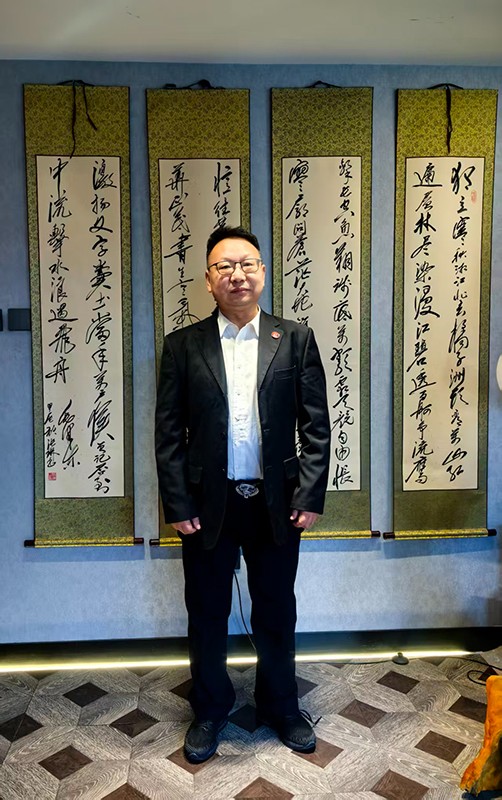 独立寒秋湘江北去橘子洲头看万山红
遍层林尽染漫江碧透百舸争流鹰
击长空鱼翔浅底万类霜天竞自由怅
寥廓问苍茫
忆往
茂书生意气
激扬文字粪土当年万户侯曾记否到
中流击水浪遏飞舟
毛泽东
甲辰秋